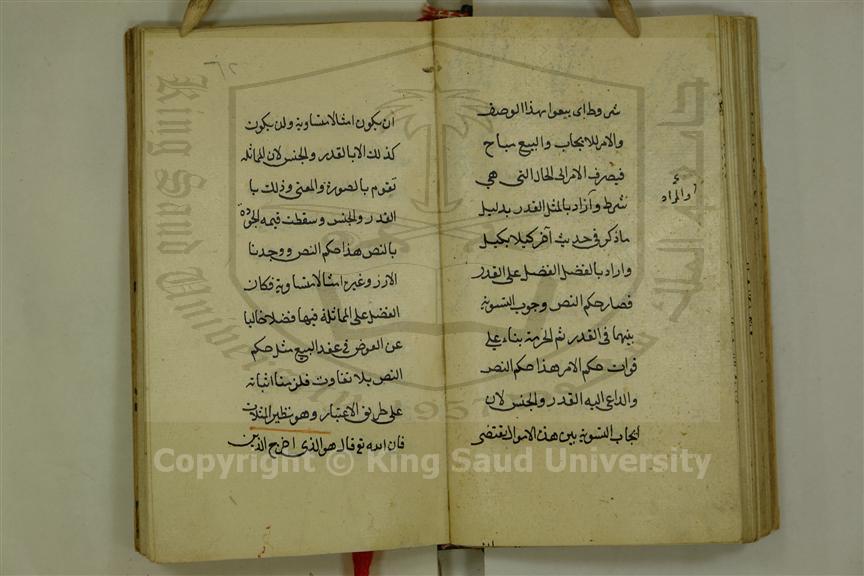 شروط اى بيعوا بهذا الوصف
والامر للايجاب والبيع مباح
فيصرف الامر الى الحال التى هى
شرط واراد بالمثل القدر بدليل
ما ذكر فى حديث آخر كيلا بكيل
واراد بالفضل الفضل على القدر
فصار حكم النص وجوب التسوية
بينهما فى القدر ثم الحرمة بناء على
فوات حكم الامر هذا حكم النص
والداعى اليه القدر والجنس لان
ايجاب التسوية بين هذه الاموال يقتضى
والمراد
ان
ان يكون امثالا متساوية ولن يكون
كذلك الا بالقدر والجنس لان المماثلة
تقوم بالصورة والمعنى وذلك با
القدر والجنس وسقطت قيمة الجودة
بالنص هذا حكم النص ووجدنا
الارز وغيره امثالا متساوية فكان
الفضل على المماثلة فيها فضلا خاليا
عن العوض فى عقد البيع مثل حكم
النص بلا تفاوت فلزمنا اثباته
على طريق الاعتبار وهو نظير المثلات
فان الله تع قال هو الذى اخرج الذين
King Saud University
1957
Copyright © King Saud University